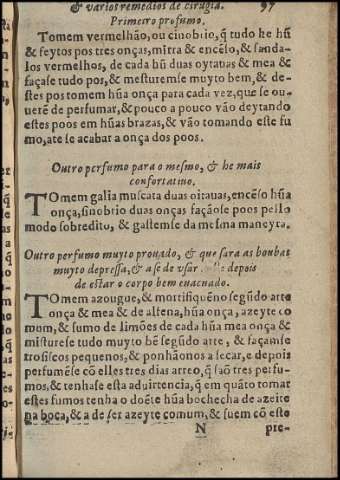 & varios remedios de cirugia. 97
Primeiro profumo.
Tomem vermelhão, ou cinobrio, q̃ tudo he hũ
& feytos pos tres onças, mirra & encẽso, & sanda-
los vermelhos, de cada hũ duas oytauas & mea &
façase tudo pos, & mesturemse muyto bem, & de-
stes pos tomem hũa onça para cada vez, que se ou-
uerẽ de perfumar, & pouco a pouco vão deytando
estes poos em hũas brazas, & vão tomando este fu
mo, ate se acabar a onça dos poos.
Outro perfumo para o mesmo, & he mais
confortatiuo.
TOmem galia muscata duas oitauas, encẽso hũa
onça, sinobrio duas onças façãose poos pello
modo sobredito, & gastemse da mesma maneyra.
Outro perfumo muyto prouado, & que sara as boubas
muyto depressa, & a se de vsar depois
de estar o corpo bem euacuado.
TOmem azougue, & mortifiquẽno segũdo arte
onça & mea & de alfena, hũa onça, azeyte co
mum, & sumo de limões de cada hũa mea onça &
misturese tudo muyto bẽ segũdo arte, & façamse
trosiscos pequenos, & ponhãonos a secar, e depois
perfumẽse cõ elles tres dias arreo, q̃ saõ tres perfu-
mos, & tenhase esta aduirtencia, q̃ em quãto tomar
estes fumos tenha o doẽte hũa bochecha de azeite
na boca, & a de ser azeyte comum, & suem cõ este
N pre-